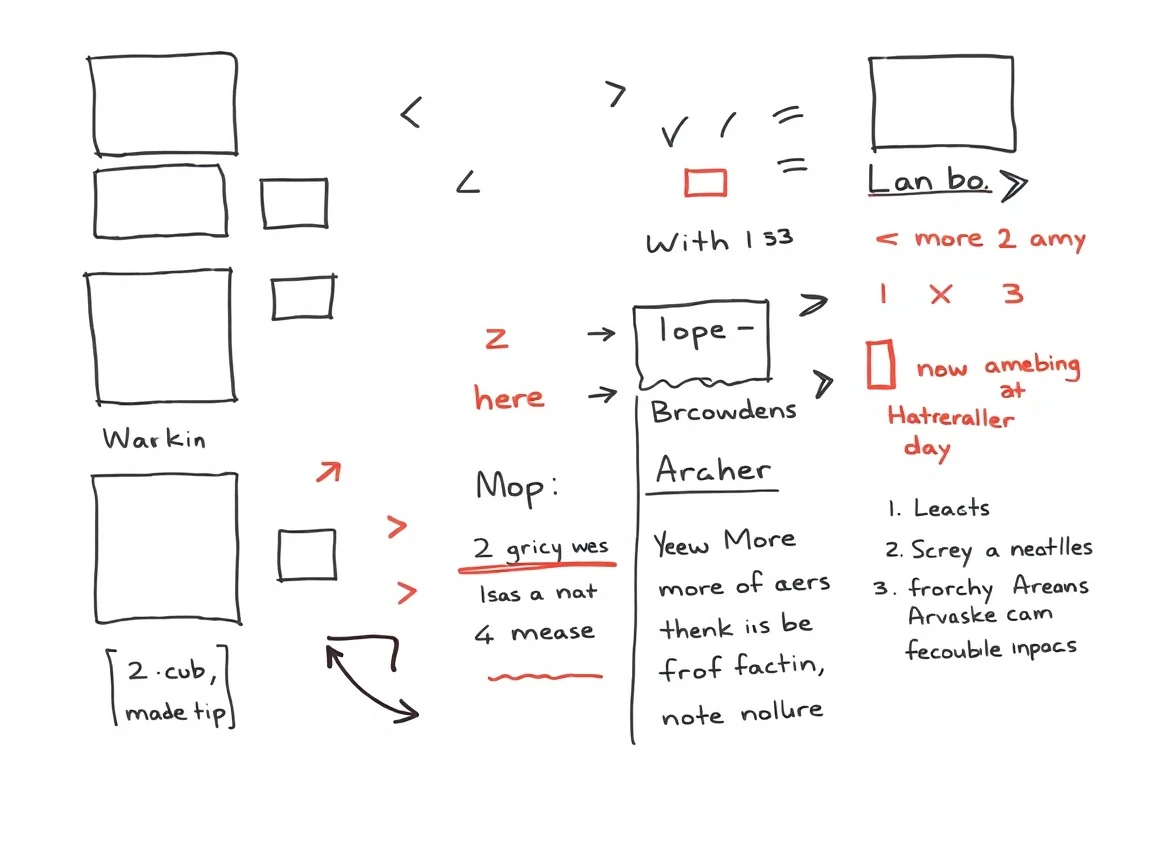 Lan bo.
With 1 53
< more 2 amy
1 x 3
z
lope -
here
now amebing
at
Brcowdens
Hatreraller
day
Warkin
Araher
Mop:
1. Leacts
2 gricy wes
Yeew More
2. Screy a neatlles
Isas a nat
more of aers
3. frorchy Areans
Arvaske cam
4 mease
thenk iis be
fecouble inpacs
2 ·cub,
frof factin,
made tip
note nollure